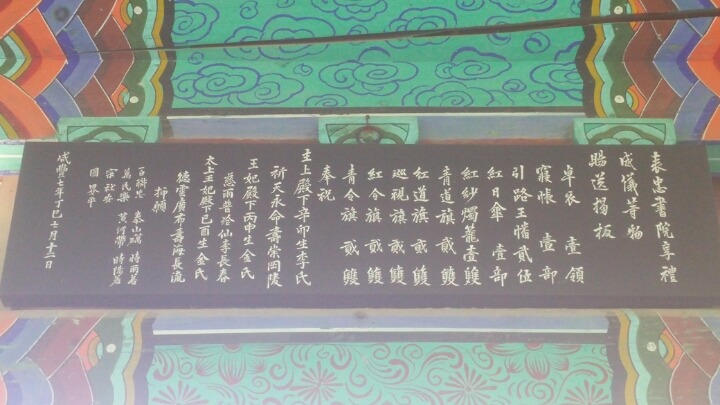 表忠書院享禮
威儀等物
賜送揭板
卓衣 壹領
寢帳 壹部
引路王幡貳伍
紅日傘 壹部
紅紗燭籠壹雙
青道旗 貳雙
紅道旗 貳雙
巡視旗 貳雙
紅令旗 貳雙
青令旗 貳雙
奉祝
主上殿下辛卯生李氏
祈天永命壽崇岡陵
王妃殿下丙申生金氏
慈雨普洽仙李長春
太上王妃殿下己酉生金氏
德雲廣布壽海長流
抑願
泰山礪 時雨若
萬民樂 黃河帶 時陽若
國界平
咸豊七年丁巳七月十二日